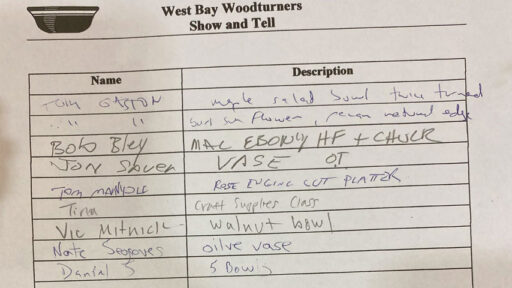 West Bay Woodturners
Show and Tell
Name Description
Tom GASTON maple salad bowl twice turned
" " " burl sun flower, pecan natural edge
Bob Bley MAC EBONY HF + CHUCK
JON Sauer VASE OT
Tom ROSE ENGINE CUT PLATTER
Tina Craft Supplies Class
Vic Mitnick walnut bowl
Nate Seagraves oilve vase
Danial S 5 Bowls